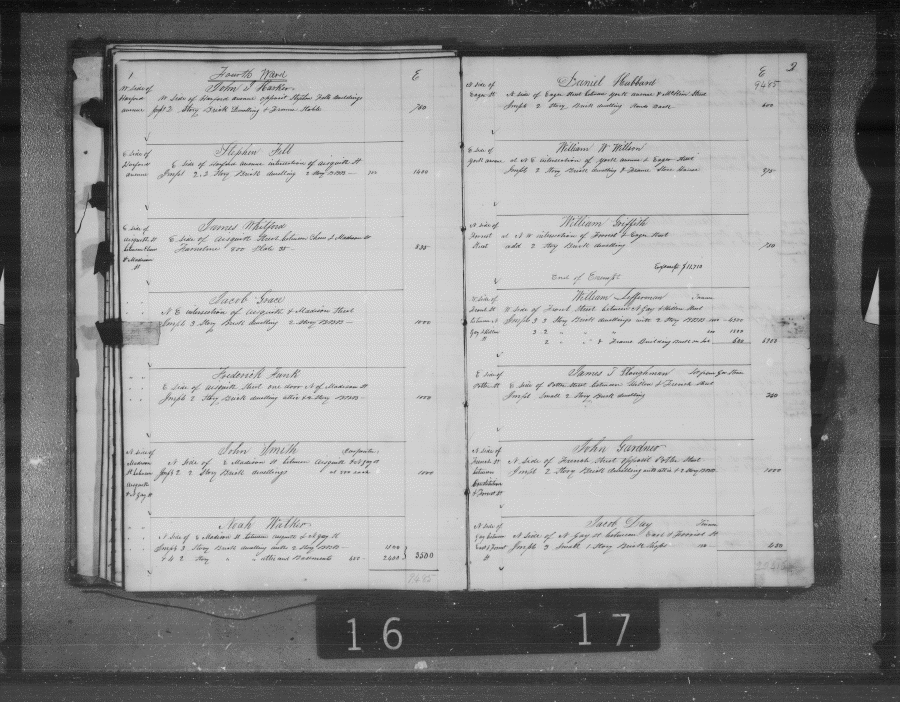 1
Fourth Ward
£
W Side of Harford avenue
John T Barker
W Side of Harford avenue opposit Stephen Fells buildings
Impt 2 Story Brick Dwelling & Frame Stable 700
E Side of Harford avenue
Stephen Fell
E Side of Harford avenue intersection of Aisquith St
Impt 2. 3 Story Brick dwelling 2 Story BBBB — 700 1400
E Side of Aisquith St between Chew & Madison St
James Whitford
E Side of Aisquith Street between Chew & Madison St
Furniture 800 Plate 35 835
Jacob Grace
N E intersection of Aisquith & Madison Street
Impt 3 Story Brick dwelling 2 Story BBBB — 1000
Frederick Funk
E Side of Aisquith Street one door N of Madison St
Impt 2 Story Brick dwelling attic & 2 Story BBBB — 1000
N Side of Madison St between Aisquith & N Gay St
John Smith Carpenter
N Side of E Madison St between Aisquith & N Gay St
Impt 2 2 Story Brick dwellings at 500 each 1000
Noah Walker
N Side of E Madison St between Aisquith & N Gay St
Impt 3 Story Brick dwelling with 2 Story BBBB — 1100
& 4 2 Story " " attic and Basements 600 — 2400 3500
9485
2
£
9485
N Side of Eager St
Daniel Hubbard
N Side of Eager Street between York avenue & Street
Impt 2 Story Brick dwelling Back 600
E Side of York avenue
William W Wilson
at N E intersection of York avenue & Eager Street
Impt 2 Story Brick dwelling & Frame Store House 975
N Side of Forrest Street
William Griffith
at N W intersection of Forrest & Eager Street
add 2 Story Brick dwelling 750
Exempt $11,710
End of Exempts
W Side of Front St between N Gay & Hillen St
William
W Side of Front Street between N Gay & Hillen Street
Impt 3 3 Story Brick dwellings with 2 Story BBBB
2 " " & Frame Building 600 6700
E Side of Potter St
James T
E Side of Potter Street between Hillen & French Street
Impt Small 2 Story Brick dwelling 250
N Side of French St between Constitution & Forrest St
John Gardner
N Side of French Street opposit Potter Street
Impt 2 Story Brick dwelling with attic & 2 Story BBBB 1000
N Side of Gay between East & Forrest St
Jacob Day
N Side of N Gay St between East & Forrest St
Impt 3 Small 1 Story Brick 450
16
17